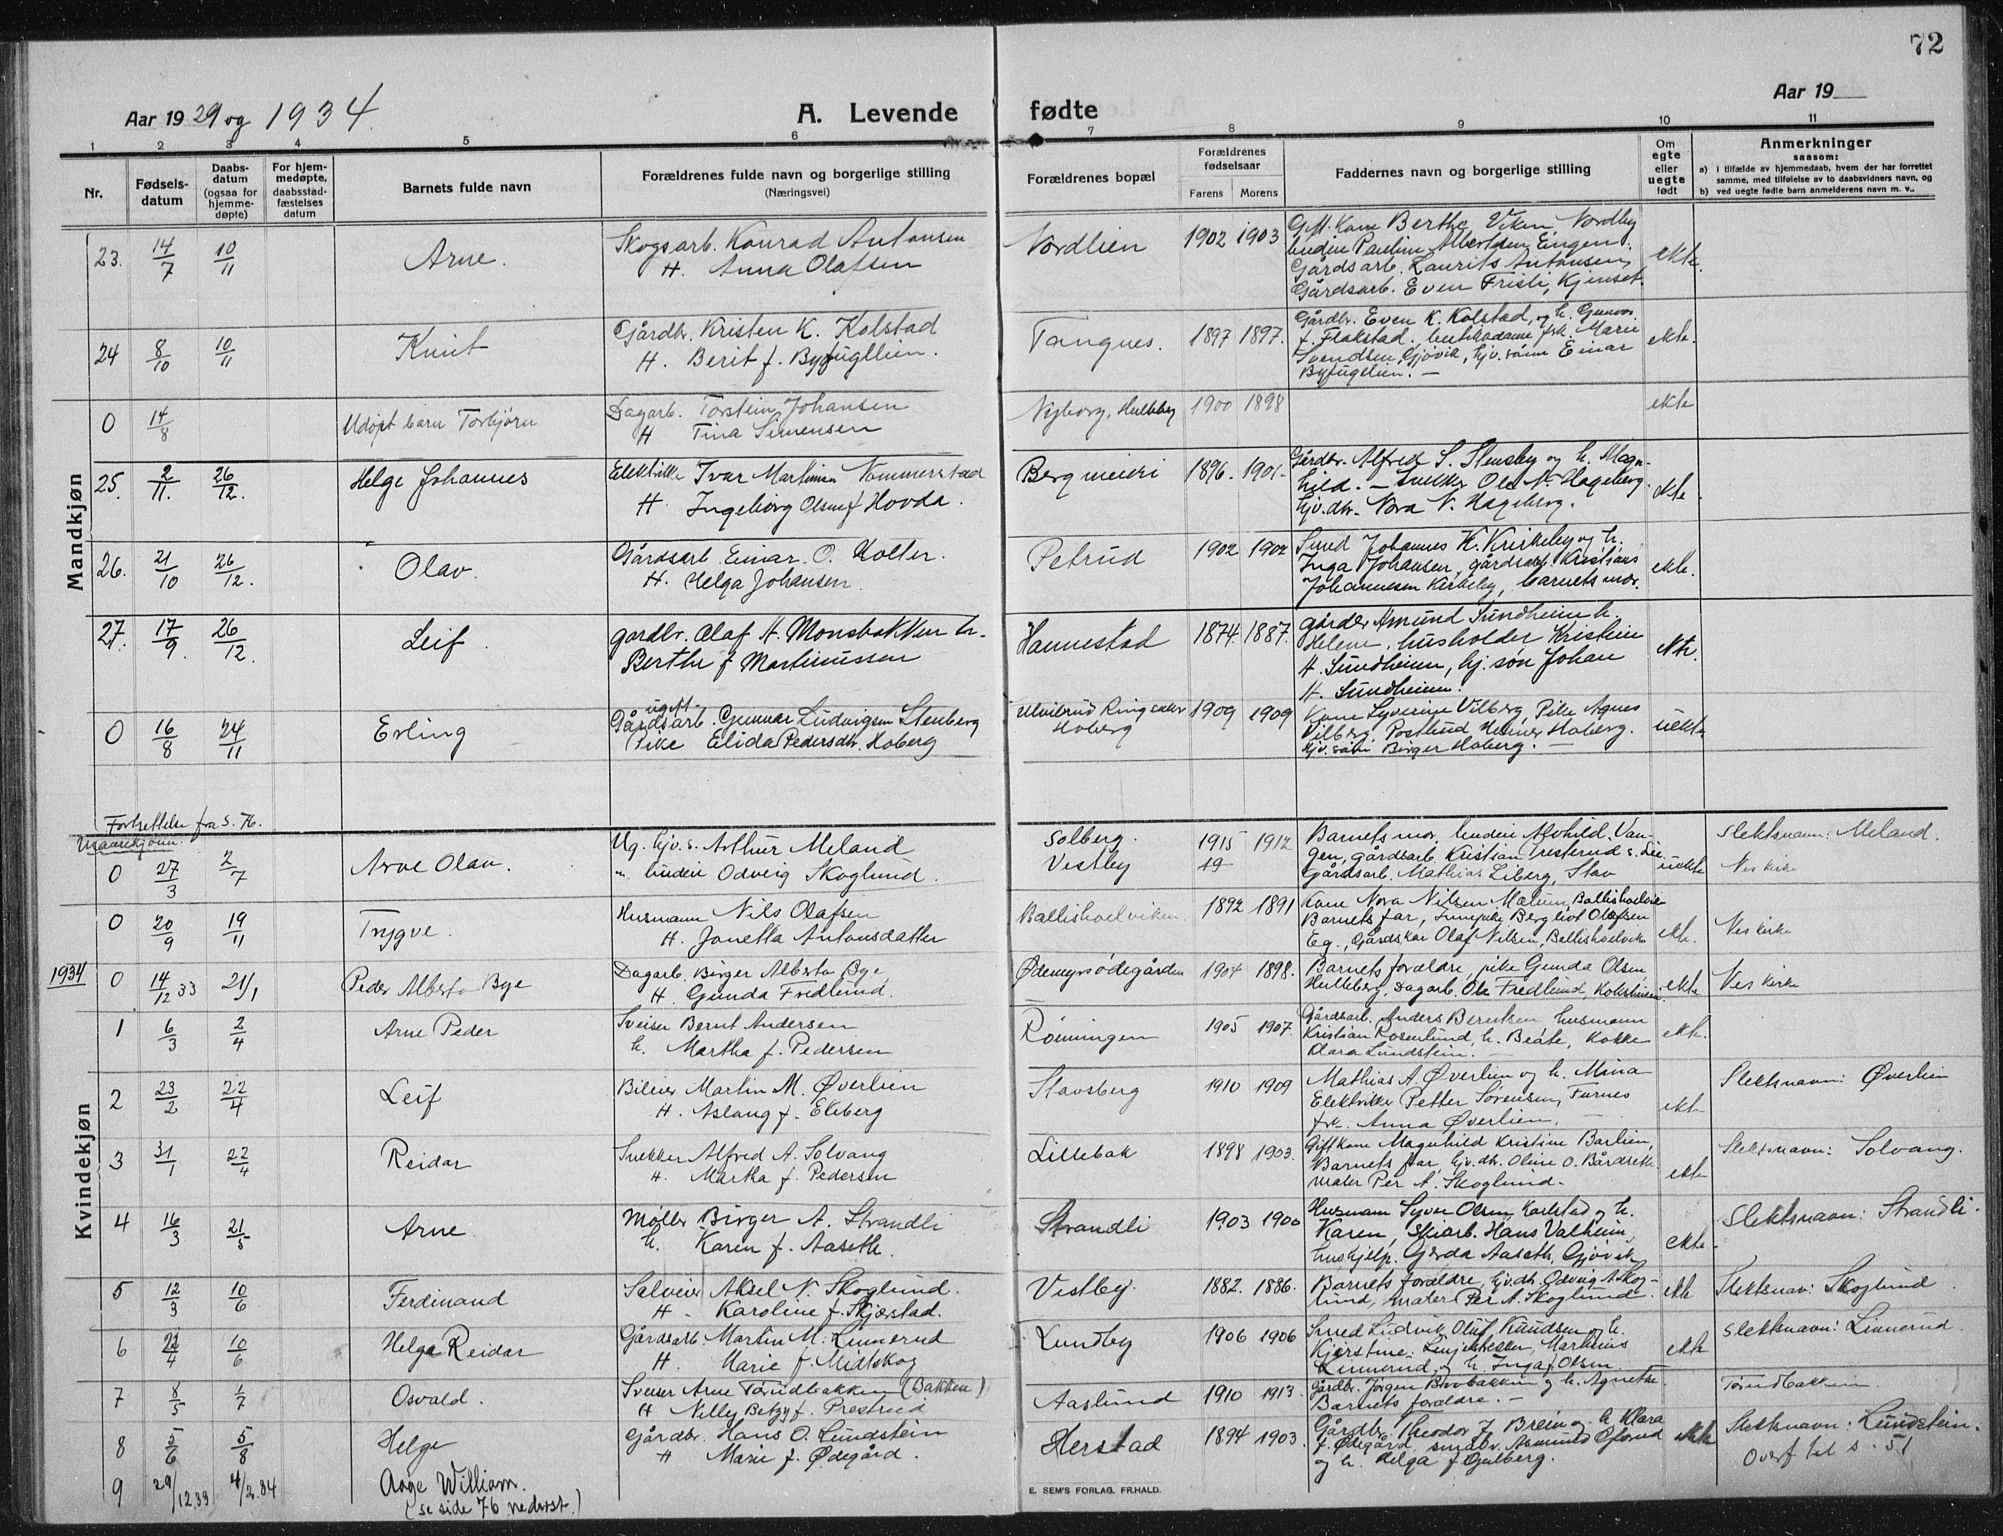 72
Aar 19 29 og 1934.
A. Levende fødte
Aar 19
1 2 3 4 5 6 7 8 9 10 11
Nr.
Fødsels-
datum
Daabs-
datum
(ogsaa for
hjemme-
døpte)
For hjem-
medøpte,
daabsstad-
fæstelses
datum
Barnets fulde navn
Forældrenes fulde navn og borgerlige stilling
(Næringsvei)
Forældrenes bopæl
Forældrenes
fødselsaar
Farens Morens
Faddernes navn og borgerlige stilling
Om
egte
eller
uegte
født
Anmerkninger
saasom:
a) i tilfælde av hjemmedaab, hvem der har forrettet
samme, med tilføielse av to daabsvidners navn, og
b) ved uegte fødte barn anmelderens navn m. v..
Mandkjøn
23. 14/7 10/11 Arne.
Skogsarb. Konrad Antonsen
H. Anna Olafsen
Nordlien 1902 1903
Gift. Kone Berthe Viken, Nordby
Gårdsarb. Laurits Antonsen,
Gårdsarb. Even Fristi, Kjenset.
ekte.
24 8/10 10/11 Knut
Gårdbr. Kristen K. Kolstad
H. Berit f. Byfuglien.
Tangnes. 1897 1897.
Gårdbr. Even K. Kolstad, og h. Gunvor
f. Flakstad. butikkdame frk. Marie
Svendsen, Gjøvik, hjv. sønn Einar
Byfuglien. —
ekte.
0 14/8 Udøpt barn Torbjørn
Dagarb. Torstein Johansen
H Tina Simensen
Nyborg, Hulleby 1900 1898
ekte
25. 2/11. 26/12. Helge Johannes
Ivar Martinsen Nommerstad
H. Ingeborg Olsen f Hovda.
Berg meieri 1896. 1901.
Gårdbr. Alfred S. Stensby og h. Magn-
hild. — Snekker Ole N. Hageberg.
hjv. dtr. Nora N. Hageberg.
ekte.
26. 21/10 26/12. Olav.
Gårdsarb Einar. O. Holter.
H. Helga Johansen.
Petrud 1902 1902
Smed Johannes K. Kirkeby og h.
Inga Johansen, gårdsarb. Kristians
Johannesen Kirkeby, barnets mor.
ekte.
27. 17/9. 26/12. Leif.
gardbr. Olaf A. Monsbakken h.
Berthe f Martinussen
Hannestad 1874. 1887.
gårdbr Amund Sundheim h.
Helene, husholder Kristein
H. Sundheim, hj. søn Johan
H. Sundheim.
ekte.
0 16/8 24/11 Erling
ugift
Gårdsarb. Gunnar Ludvigsen Stenberg
Pike Elida Pedersdtr. Hoberg
Ulvilrud Ringsaker
Hoberg
1909 1909
Kone Syverine Vilberg, Pike Agnes
Vilberg. Postbud Helmer Hoberg.
hjv. sønn Birger Hoberg. —
uekte
Fortsettelse fra s. 76.
Mannkjønn.
0 27/3 2/7 Arve Olav.
Ug. hjv. s. Arthur Meland
" budeie Odveig Skoglund.
Solberg.
Vestby
1915 1912
Barnets mor, budeie Alvhild Van-
gen, gårdsarb. Kristian
Gårdsarb. Mathias Liberg, Stav
uekte
Slektsnavn: Meland.
Nes kirke
0 20/9 19/11 Trygve.
Husmann Nils Olafsen
H. Jonetta Antonsdatter
Ballishoelviken. 1892 1891
Kone Nora Nilsen Mælum, Ballishoelvik
Barnets far, Bergliot Olafsen
Eg., Gårdskar Olaf Nilsen, Ballishoelvik
ekte.
Nes kirke
1934
0 14/12 33 21/1 Peder Alberto Bye
Dagarb. Birger Alberto Bye
H. Gunda Fredlund.
Ødemyrsødegården 1904 1898.
Barnets foreldre, pike Gunda Olsen
Hulleberg, Dagarb. Ole Fredlund,
ekte
Nes kirke
Kvindekjøn
1 6/3 2/4 Arne Peder
Sveiser Bernt Andersen
h. Martha f. Pedersen
Rønningen 1905 1907.
Gårdsarb. Anders Berntsen husmann
Kristian Rosenlund, h. Beate, Kokke
Klara Lundstein. —
ekte.
2 23/2 22/4 Leif
Bileier Martin M. Øverlien
H. Aslaug f. Ekberg
Stavsberg 1910 1909
Mathias A. Øverlien og h. Mina
Elektriker Petter Sørensen, Furnes
frk. Anna Øverlien.
ekte
Slektsnavn: Øverlien
3 31/1 22/4 Reidar
Snekker Alfred A. Solvang
H. Marka f. Pedersen
Lillebak 1898 1903.
Gift kone Magnhild Kristine Barlien,
Barnets far, hjv. dtr. Oline O. Bårdseth
maler Per A. Skoglund.
ekte
Slektsnavn: Solvang.
4 16/3 21/5 Arne.
Møller Birger A. Strandli
h. Karen f. Aaseth.
Strandli 1903 1900
Husmann Syver Olsen Karlstad og h.
Karen, Skiarb. Hans Valheim,
hushjelp. Gerda Aaseth, Gjøvik
ekte.
Slektsnavn: Strandli.
5 12/3 10/6 Ferdinand
Aksel N. Skoglund.
H. Karoline f. Skjæstad.
Vestby. 1882. 1886.
Barnets foreldre, hjv. dtr. Odveig A. Skog-
lund, maler Per A. Skoglund.
ekte
Slektsnavn: Skoglund
6 22/4 10/6 Helge Reidar
Gårdsarb. Martin M. Linnerud
H. Marie f. Midtskog
Lundby 1906 1906
Smed Ludvik Oluf Knudsen og h.
Kjerstine. Linjekikker Marthinius
Linnerud og h. Inga f. Olsen.
ekte
Slektsnavn: Linnerud
7 8/5 1/7 Osvald.
Sveiser Arne Tørudbakken (Bakken)
H Nelly Betzy f. Prestrud
Aaslund 1910 1913.
Gårdbr. Jørgen Brobakken og h. Agnethe.
Barnets foreldre. —
Tørudbakken
8 5/6 5/8 Helge
Gårdbr. Hans O. Lundstein
H Marie f. Ødegård.
Herstad 1894 1903.
Gårdbr. Theodor J Brein og h Klara
f. Ødegård, småbr. Asmund Ofsrud
og h. Helga f Gulberg.
ekte
Slektsnavn: Lundstein.
Overf til s. 51
9 29/12.33 4/2.34 Aage William.
(se side 76 nederst.)
E. SEM'S FORLAG, FR.HALD.